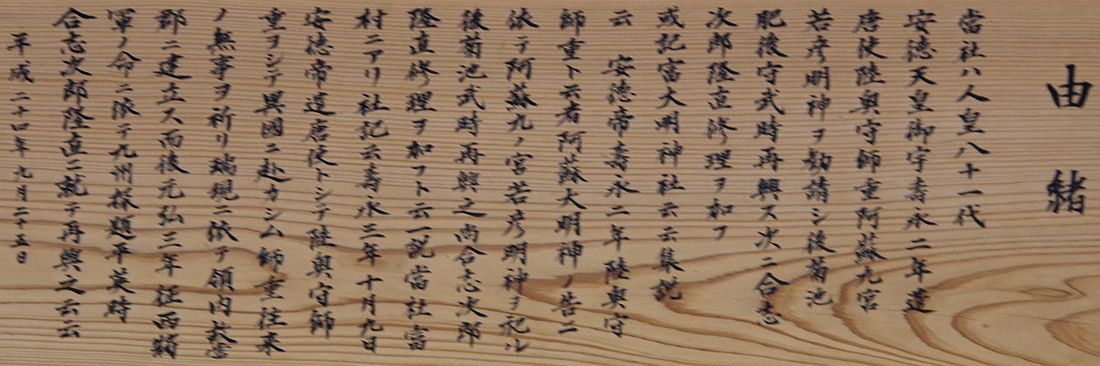 由緒
當社ハ人皇八十一代
安徳天皇御宇壽永二年遣
唐使陸奥守師重阿蘇九宮
若彦明神ヲ勧請シ後菊池
肥後守武時再興ス次ニ合志
次郎隆直修理ヲ加フ
或記富大明神社云云集説
云 安徳帝壽永二年陸奥守
師重ト云者阿蘇大明神ノ告ニ
依テ阿蘇九ノ宮若彦明神ヲ記ル
後菊池武時再興之尚合志次郎
隆直修理ヲ加フト云一説當社富
村ニアリ社記云壽永三年十月九日
安徳帝遣唐使トシテ陸奥守師
重ヲシテ異國ニ赴カシム師重往来
ノ無事ヲ祈リ瑞現ニ依テ領内
郡ニ建立ス而後元弘三年征西
軍ノ命ニ依テ九州探題平英時
合志次郎隆直ニ就テ再興之云云
平成二十四年九月二十五日